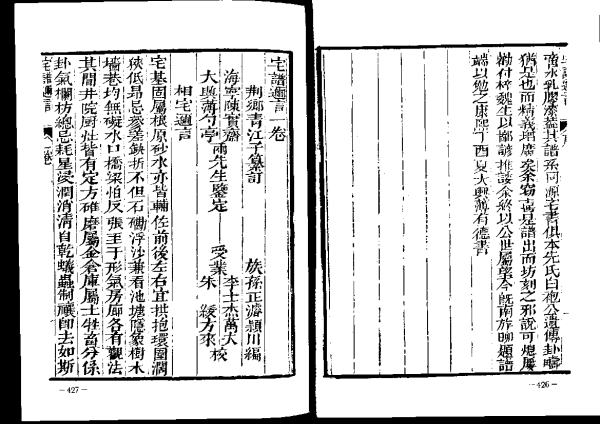 水乳膠漆蓋其譜系河源宅書俱本先氏白袍公遺傳卦疇
猶是也而精義增廣矣余竊喜是譜出而坊刻之邪說可熄屢
勸付梓魏生以鄙諺推諉余終以公世屬望今既南旋聊題譜
端以勉之康熙丁酉夏大興蕭有德書
— 426 —
宅譜邇言一卷
荆鄉青江子纂訂 族孫正濬潁川編
海寧陳實齋
大興蕭勺亭
兩先生鑒定 受業
李士杰萬人
朱 綏方來
校
相宅邇言
宅基固屬根原砂水亦皆輔佐前後左右宜拱抱環圍濶
狹低昂忌缺折不但石磡浮沙兼看池塘隱象樹水
墻巷均無礙水口橋梁怕反張至于形氣房廊各有觀法
其間井院厨灶皆有定方碓磨屬金倉庫屬土牲畜分係
卦氣欄枋總忌耗星浸潤消清自乾蟻蟲制禳即去如斯
宅譜邇言
— 427 —